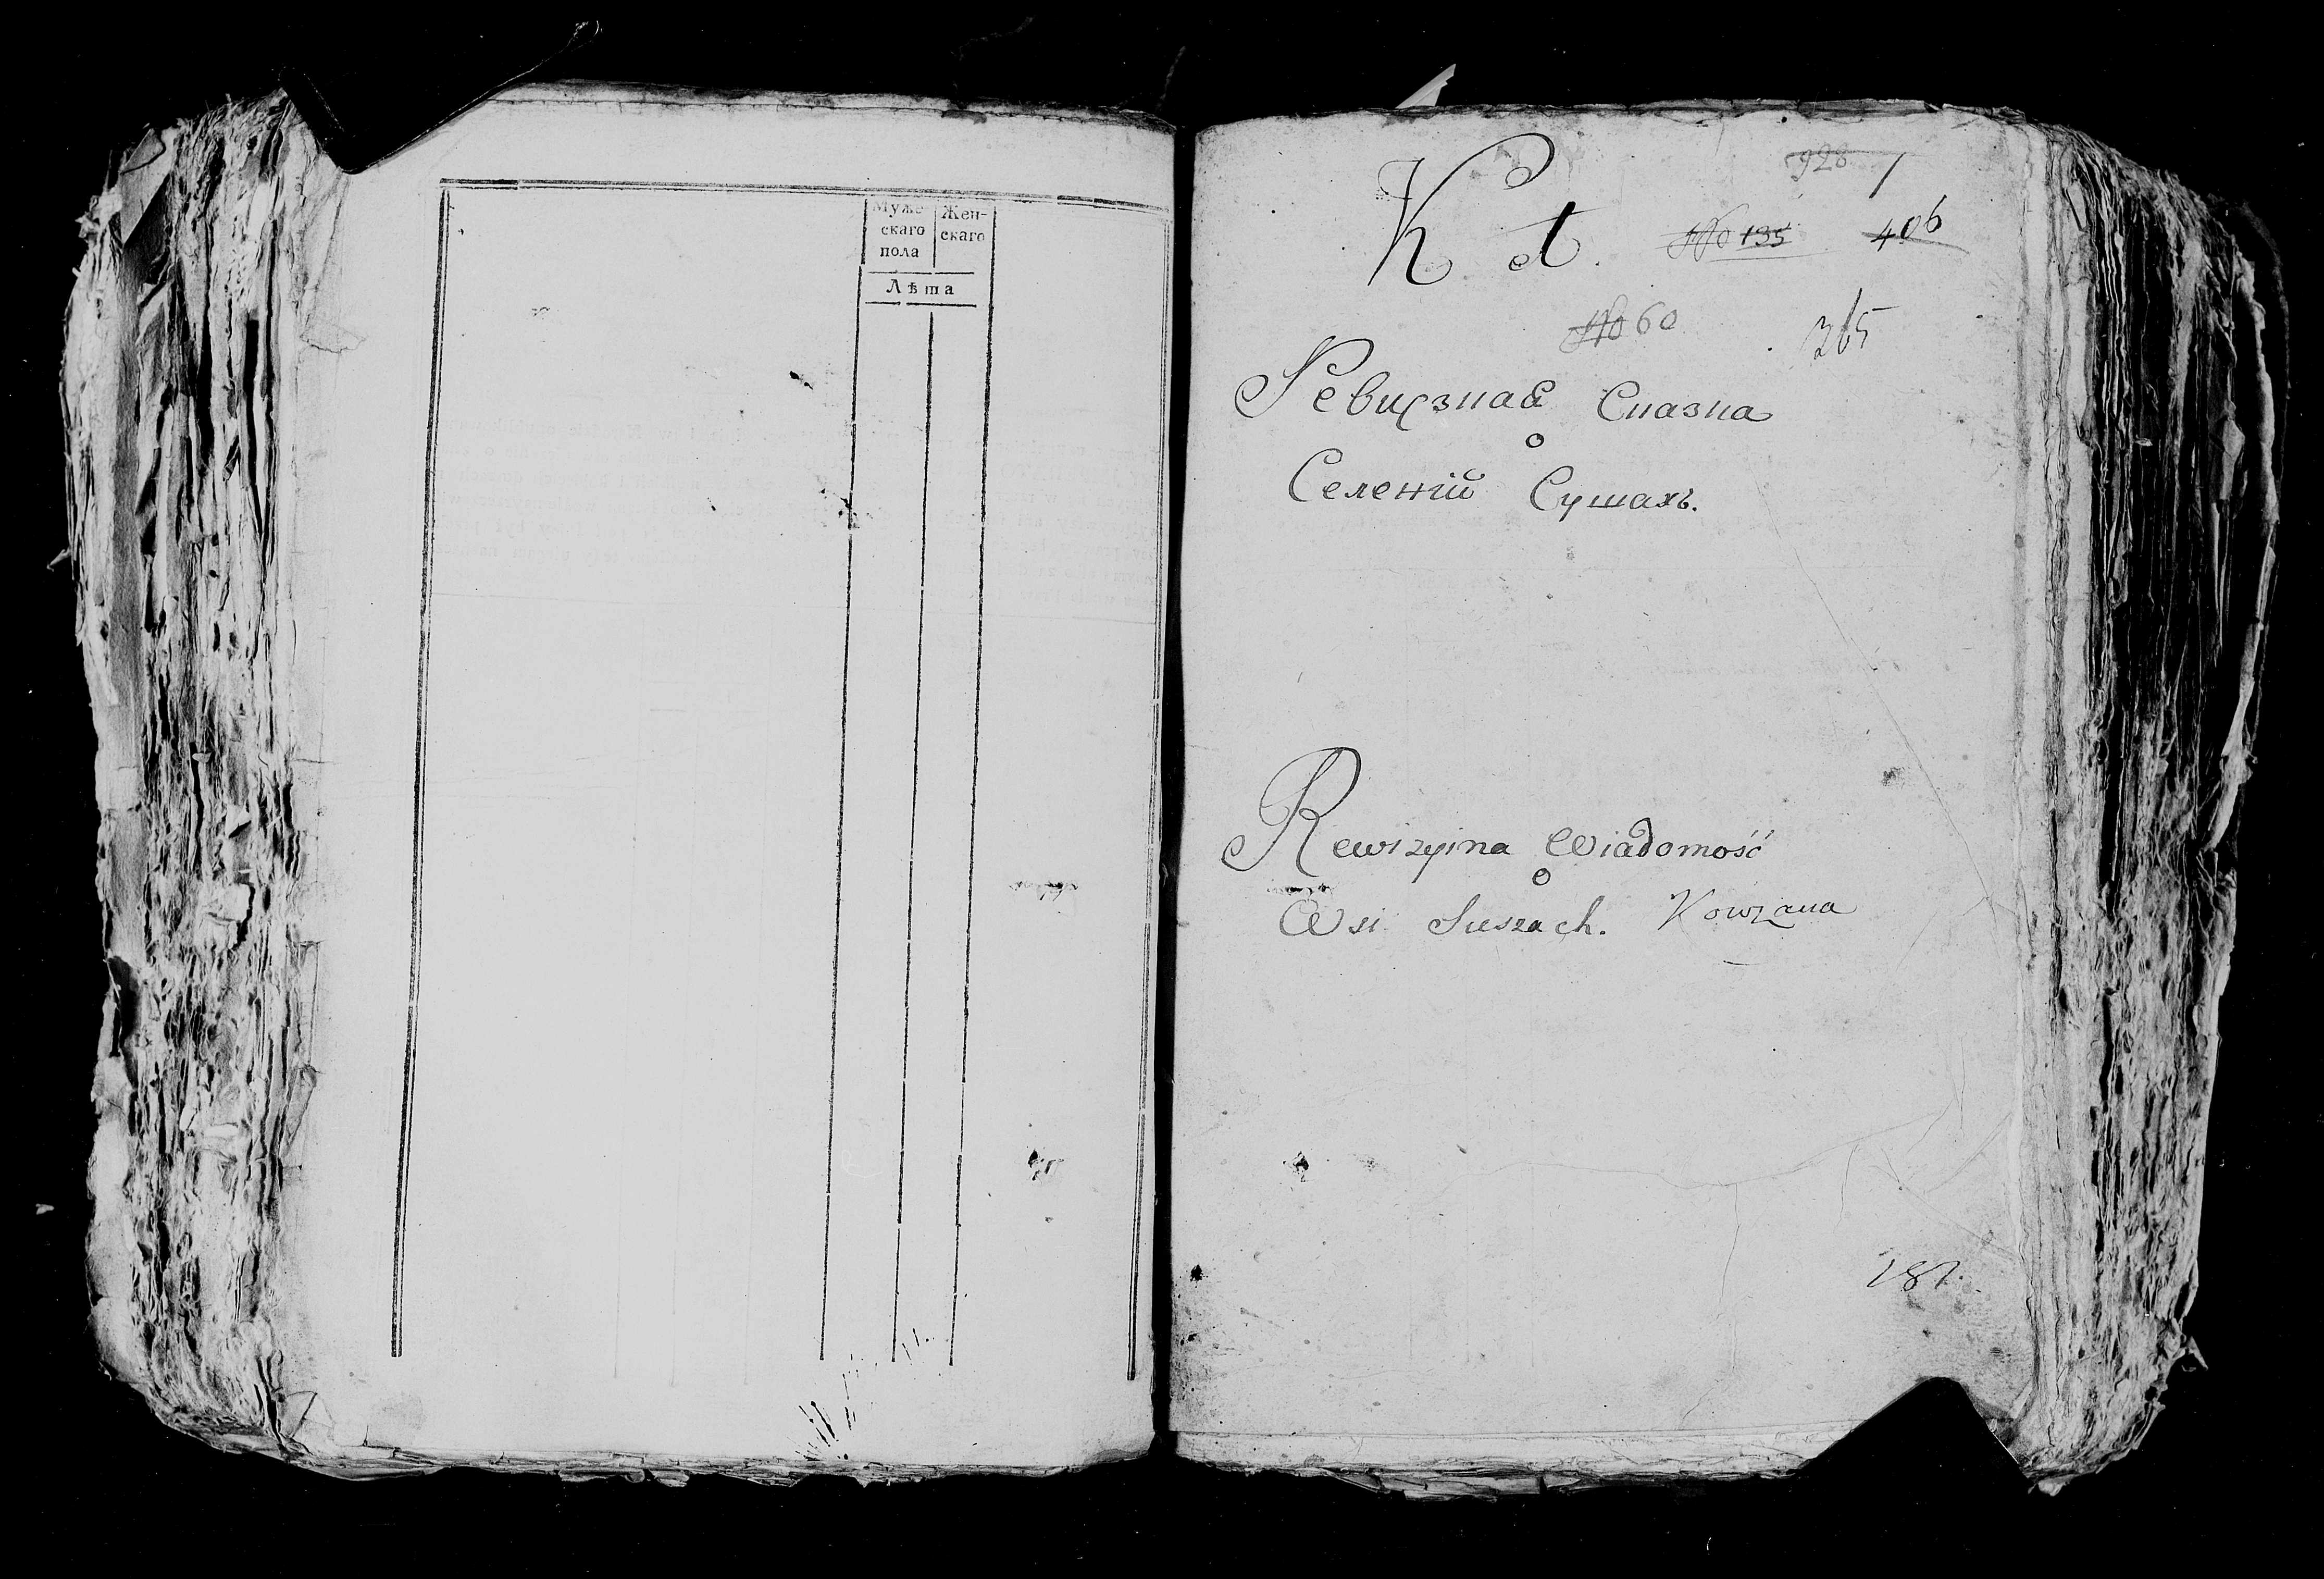 Муже-
скаго
пола
Жен-
скаго
Лѣта
928
К А.
No 135
406
No 60
365
Ревизная Сказка
о
Селеній Сушахъ.
Rewizyina Wiadomość
o
Wsi Suszach. Kowzana
187.